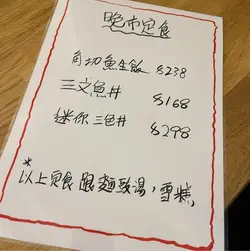 晚市定食
角切魚生飯 $238
三文魚丼 $168
迷你三色丼 $298
*
以上定食跟麵豉湯,雪糕,